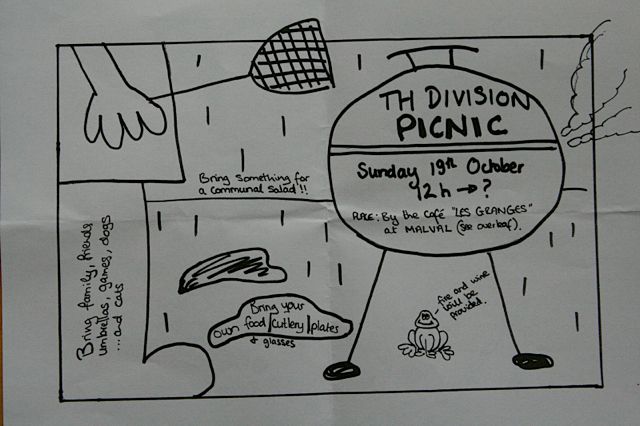 TH DIVISION
PICNIC
Sunday 19th October
12h → ?
PLACE: By the café "LES GRANGES"
at MALVAL (see overleaf).
Bring something for
a communal salad!!
Bring family, friends
umbrellas, games, dogs
...and cats
Bring your
own food/cutlery/plates
& glasses
fire and wine
will be
provided.